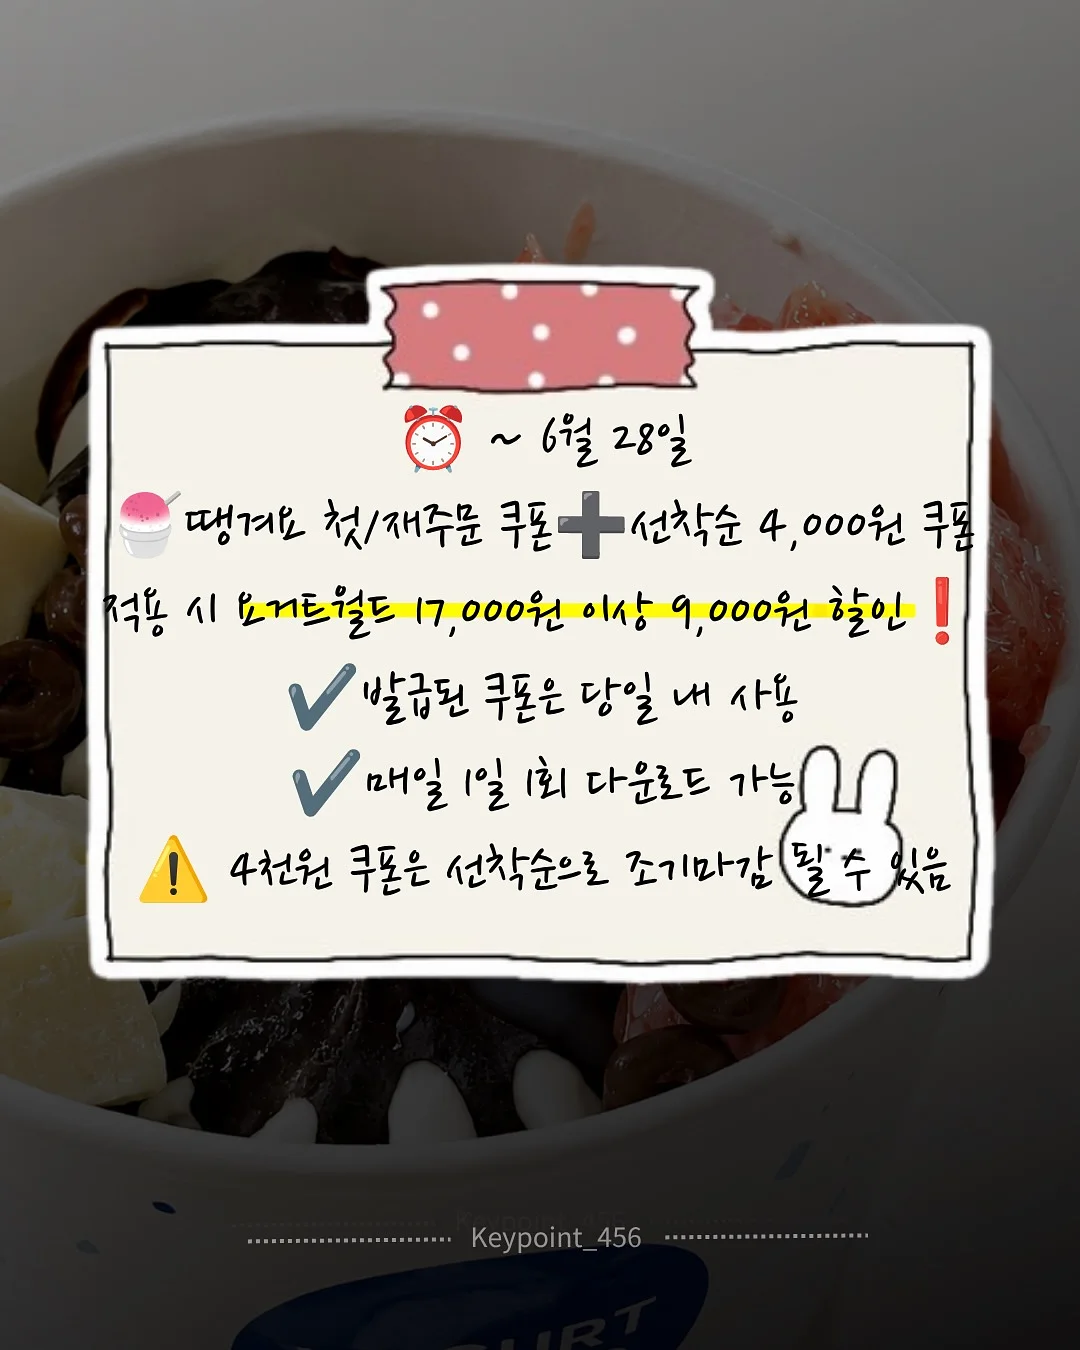 ~ 6월 28일
땡겨요 첫/재주문 쿠폰➕선착순 4,000원 쿠폰
적용 시 요거트월드 17,000원 이상 9,000원 할인❗
✔발급된 쿠폰은 당일 내 사용
✔매일 1일 1회 다운로드 가능
⚠ 4천원 쿠폰은 선착순으로 조기마감 될 수 있음
Keypoint_456